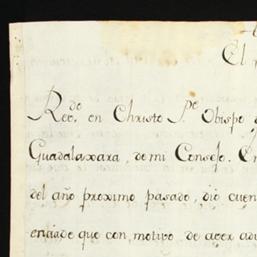 El
Rdo. en Christo Pe. Obispo
Guadalaxara, de mi Consejo. En
del año proximo pasado, dio cuen
enciado que con motivo de aver